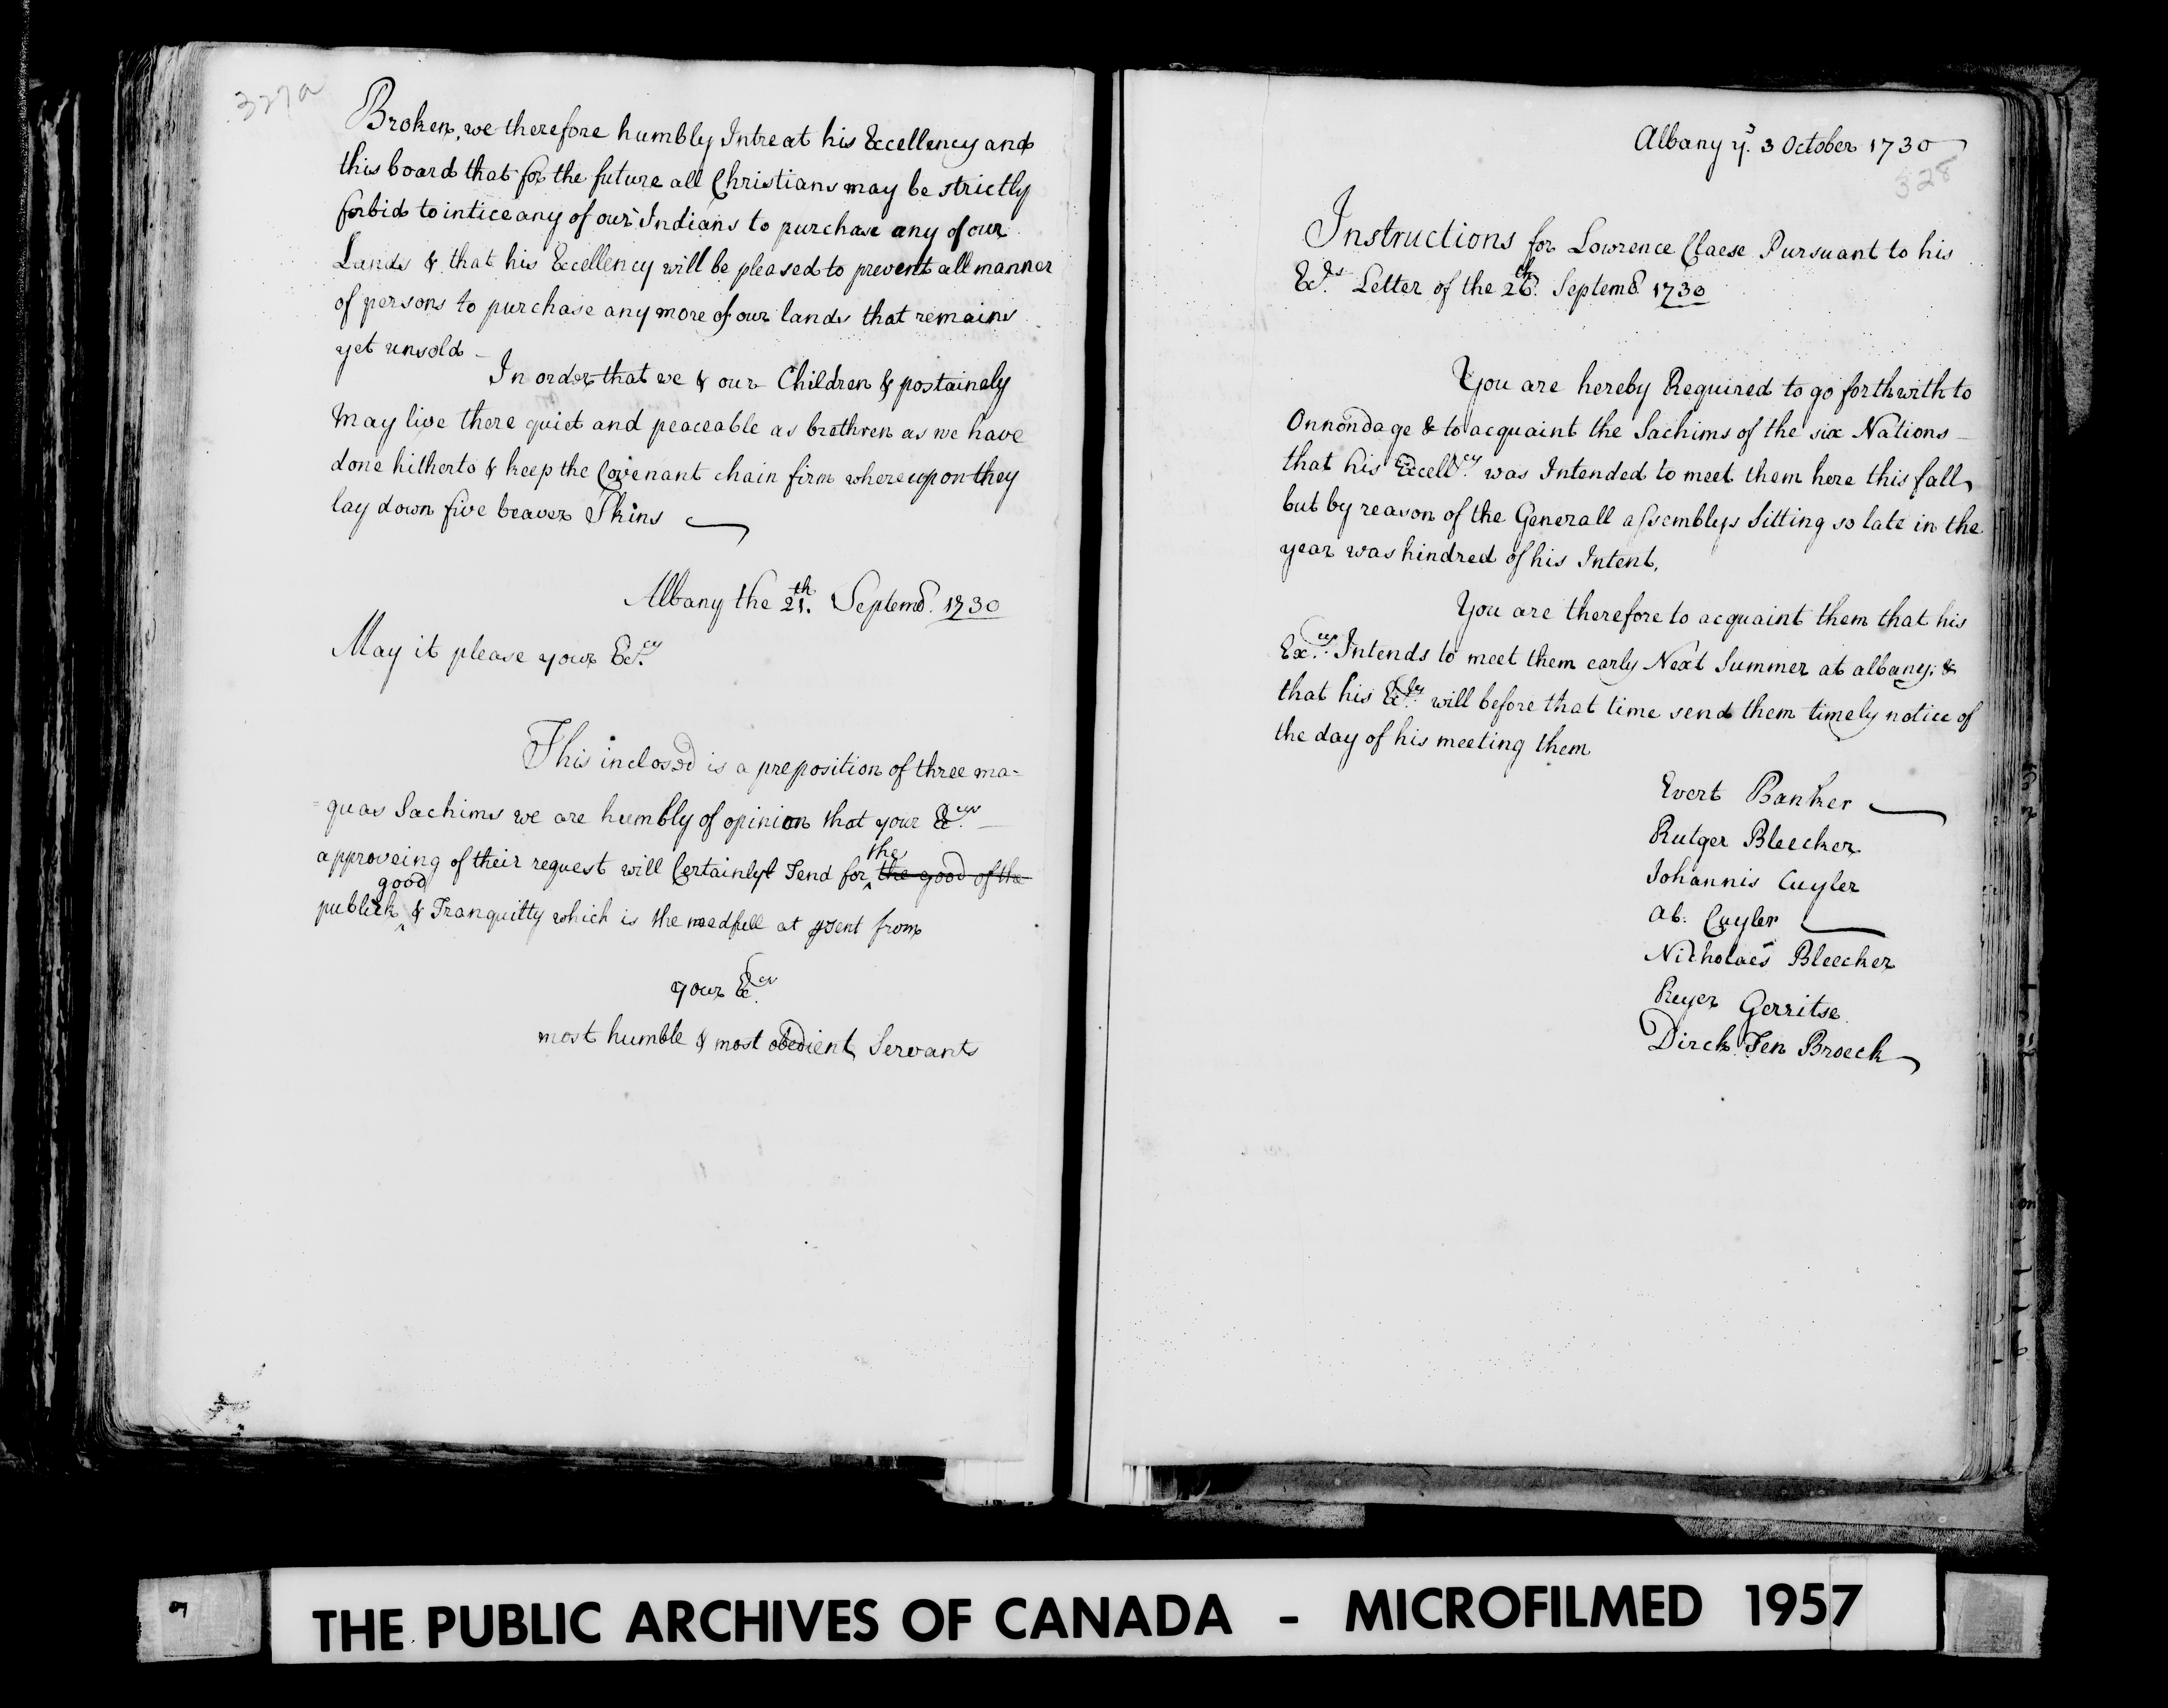 327a
Broken, we therefore humbly Intreat his Excellency and
this board that for the future all Christians may be strictly
forbid to intice any of our Indians to purchase any of our
Lands & that his Excellency will be pleased to prevent all manner
of persons to purchase any more of our lands that remains
yet unsold
In order that we & our Children & postainely
may live there quiet and peaceable as brethren as we have
done hitherto & keep the Covenant chain firm whereupon they
lay down five beaver Skins
Albany the 21th. Septembr. 1730
May it please your Exc.cy
This inclosed is a preposition of three ma=
=quas Sachims we are humbly of opinion that your Ex.cy
approveing of their request will Certainlyt Tend for the the good of the
publick good & Tranquilty which is the needfull at psent from
your Ex.cy
most humble & most obedient Servants
Albany ye. 3 October 1730
328
Instructions for Lowrence Claese Pursuant to his
Ex.ys Letter of the 26th. Septembr. 1730
You are hereby Required to go forthwith to
Onnondage & to acquaint the Sachims of the six Nations
that his Excell.cy was Intended to meet them here this fall,
but by reason of the Generall assemblys Sitting so late in the
year was hindred of his Intent.
You are therefore to acquaint them that his
Ex.cy Intends to meet them early Next Summer at albany; &
that his Ex.cy will before that time send them timely notice of
the day of his meeting them
Evert Banker
Rutger Bleecker
Johannis Cuyler
Ab: Cuyler
Nicholaes Bleecker
Reyer Gerritse
Dirck Ten Broeck
THE PUBLIC ARCHIVES OF CANADA - MICROFILMED 1957